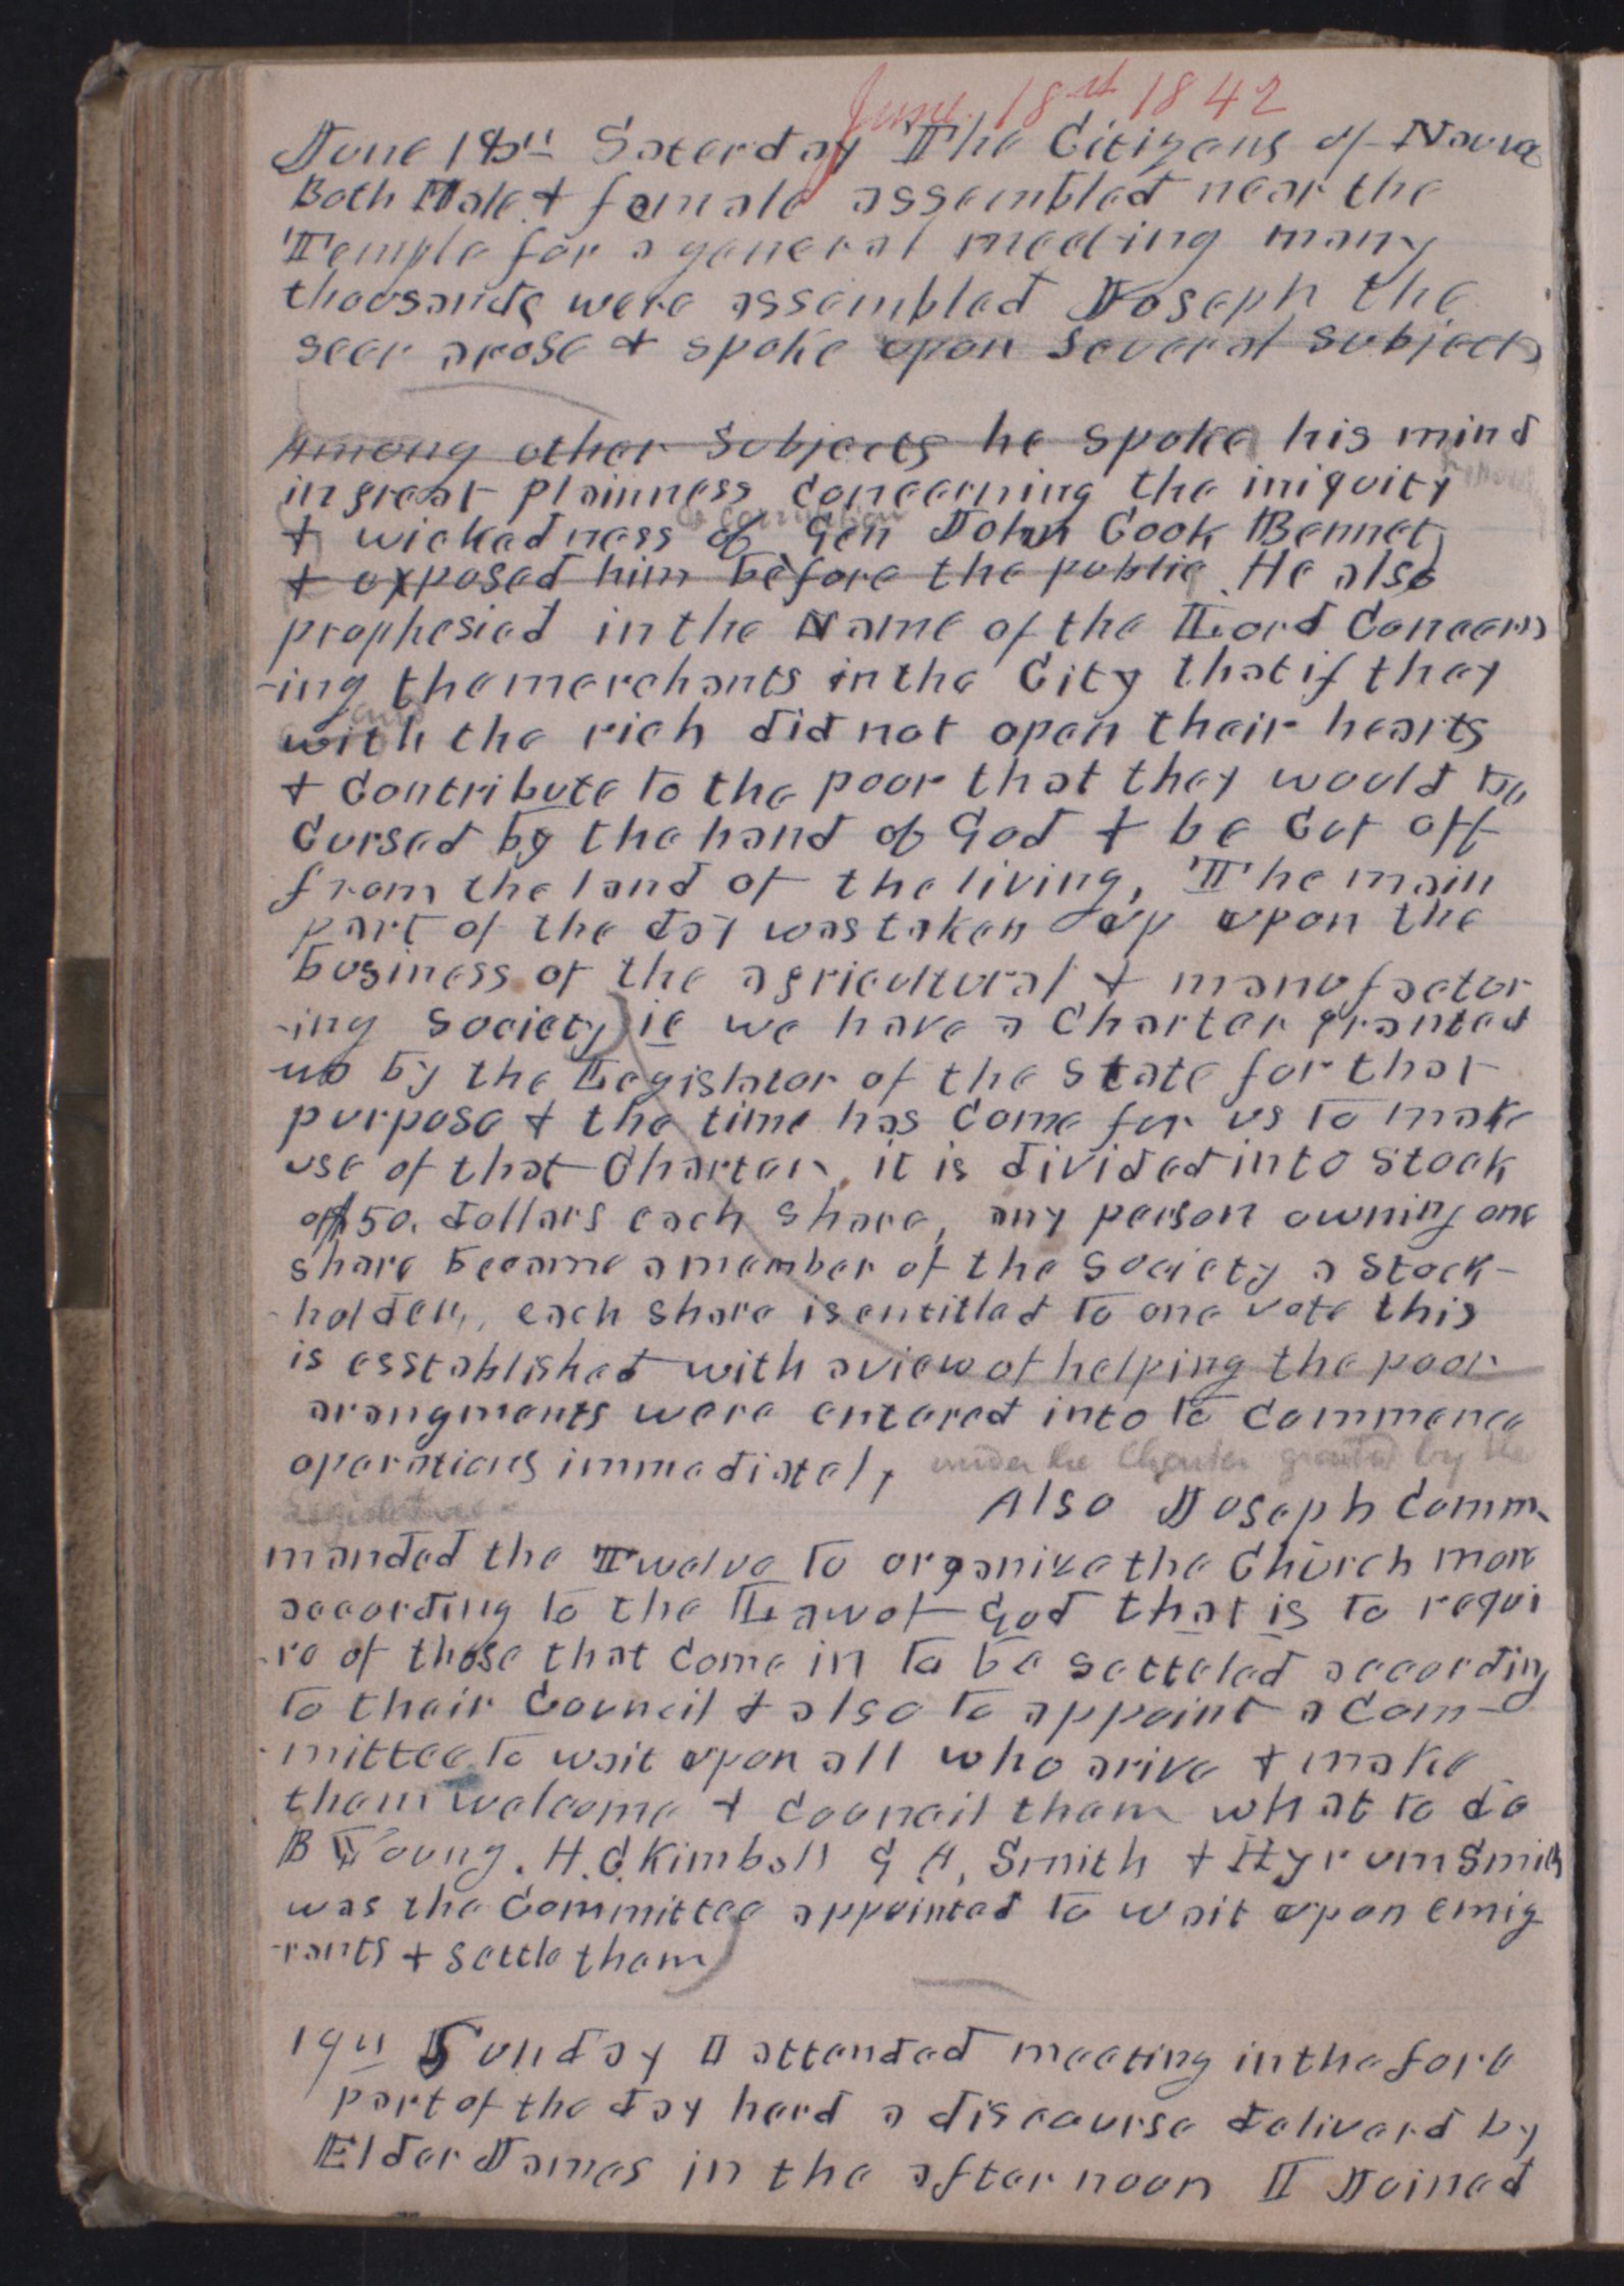 June. 18th 1842
June 18th Saterday The Citizens of Nauvo
Both Male & female assembled near the
Temple for a general meeting many
thousands were assembled Joseph the
seer arose & spoke upon several subjects
Among other subjects he spoke his mind
in great plainness concerning the iniquity
& corruption
& wickedness of Gen John Cook Bennet
& exposed him before the public He also
prophesied in the Name of the Lord Concern
-ing the merchants in the City that if they
and
with the rich did not open their hearts
& Contribute to the poor that they would be
Cursed by the hand of God & be Cut off
from the land of the living, The main
part of the day was taken up upon the
business of the agricultural & manufactor
-ing Society ie we have a Charter granted
us by the Legislator of the State for that
purpose & the time has Come for us to make
use of that Charter, it is divided into Stock
of $50. dollars each share, any person owning one
share became a member of the Society a Stock-
-holder, each share is entitled to one vote this
is esstablished with a view of helping the poor
arangments were entered into to Commence
operations immediately under the Charter granted by the
Legislature -
Also Joseph Comm-
manded the Twelve to organize the Church more
according to the Law of God that is to requi
-re of those that Come in to be setteled according
to their Council & also to appoint a Com-
-mittee to wait upon all who arive & make
them welcome & Council them what to do
B Young. H. C. Kimball G A, Smith & Hyrum Smith
was the Committee appointed to wait upon emig
-rants & settle them
19th Sunday I attended meeting in the fore
part of the day herd a discourse deliverd by
Elder James in the after noon I Joined